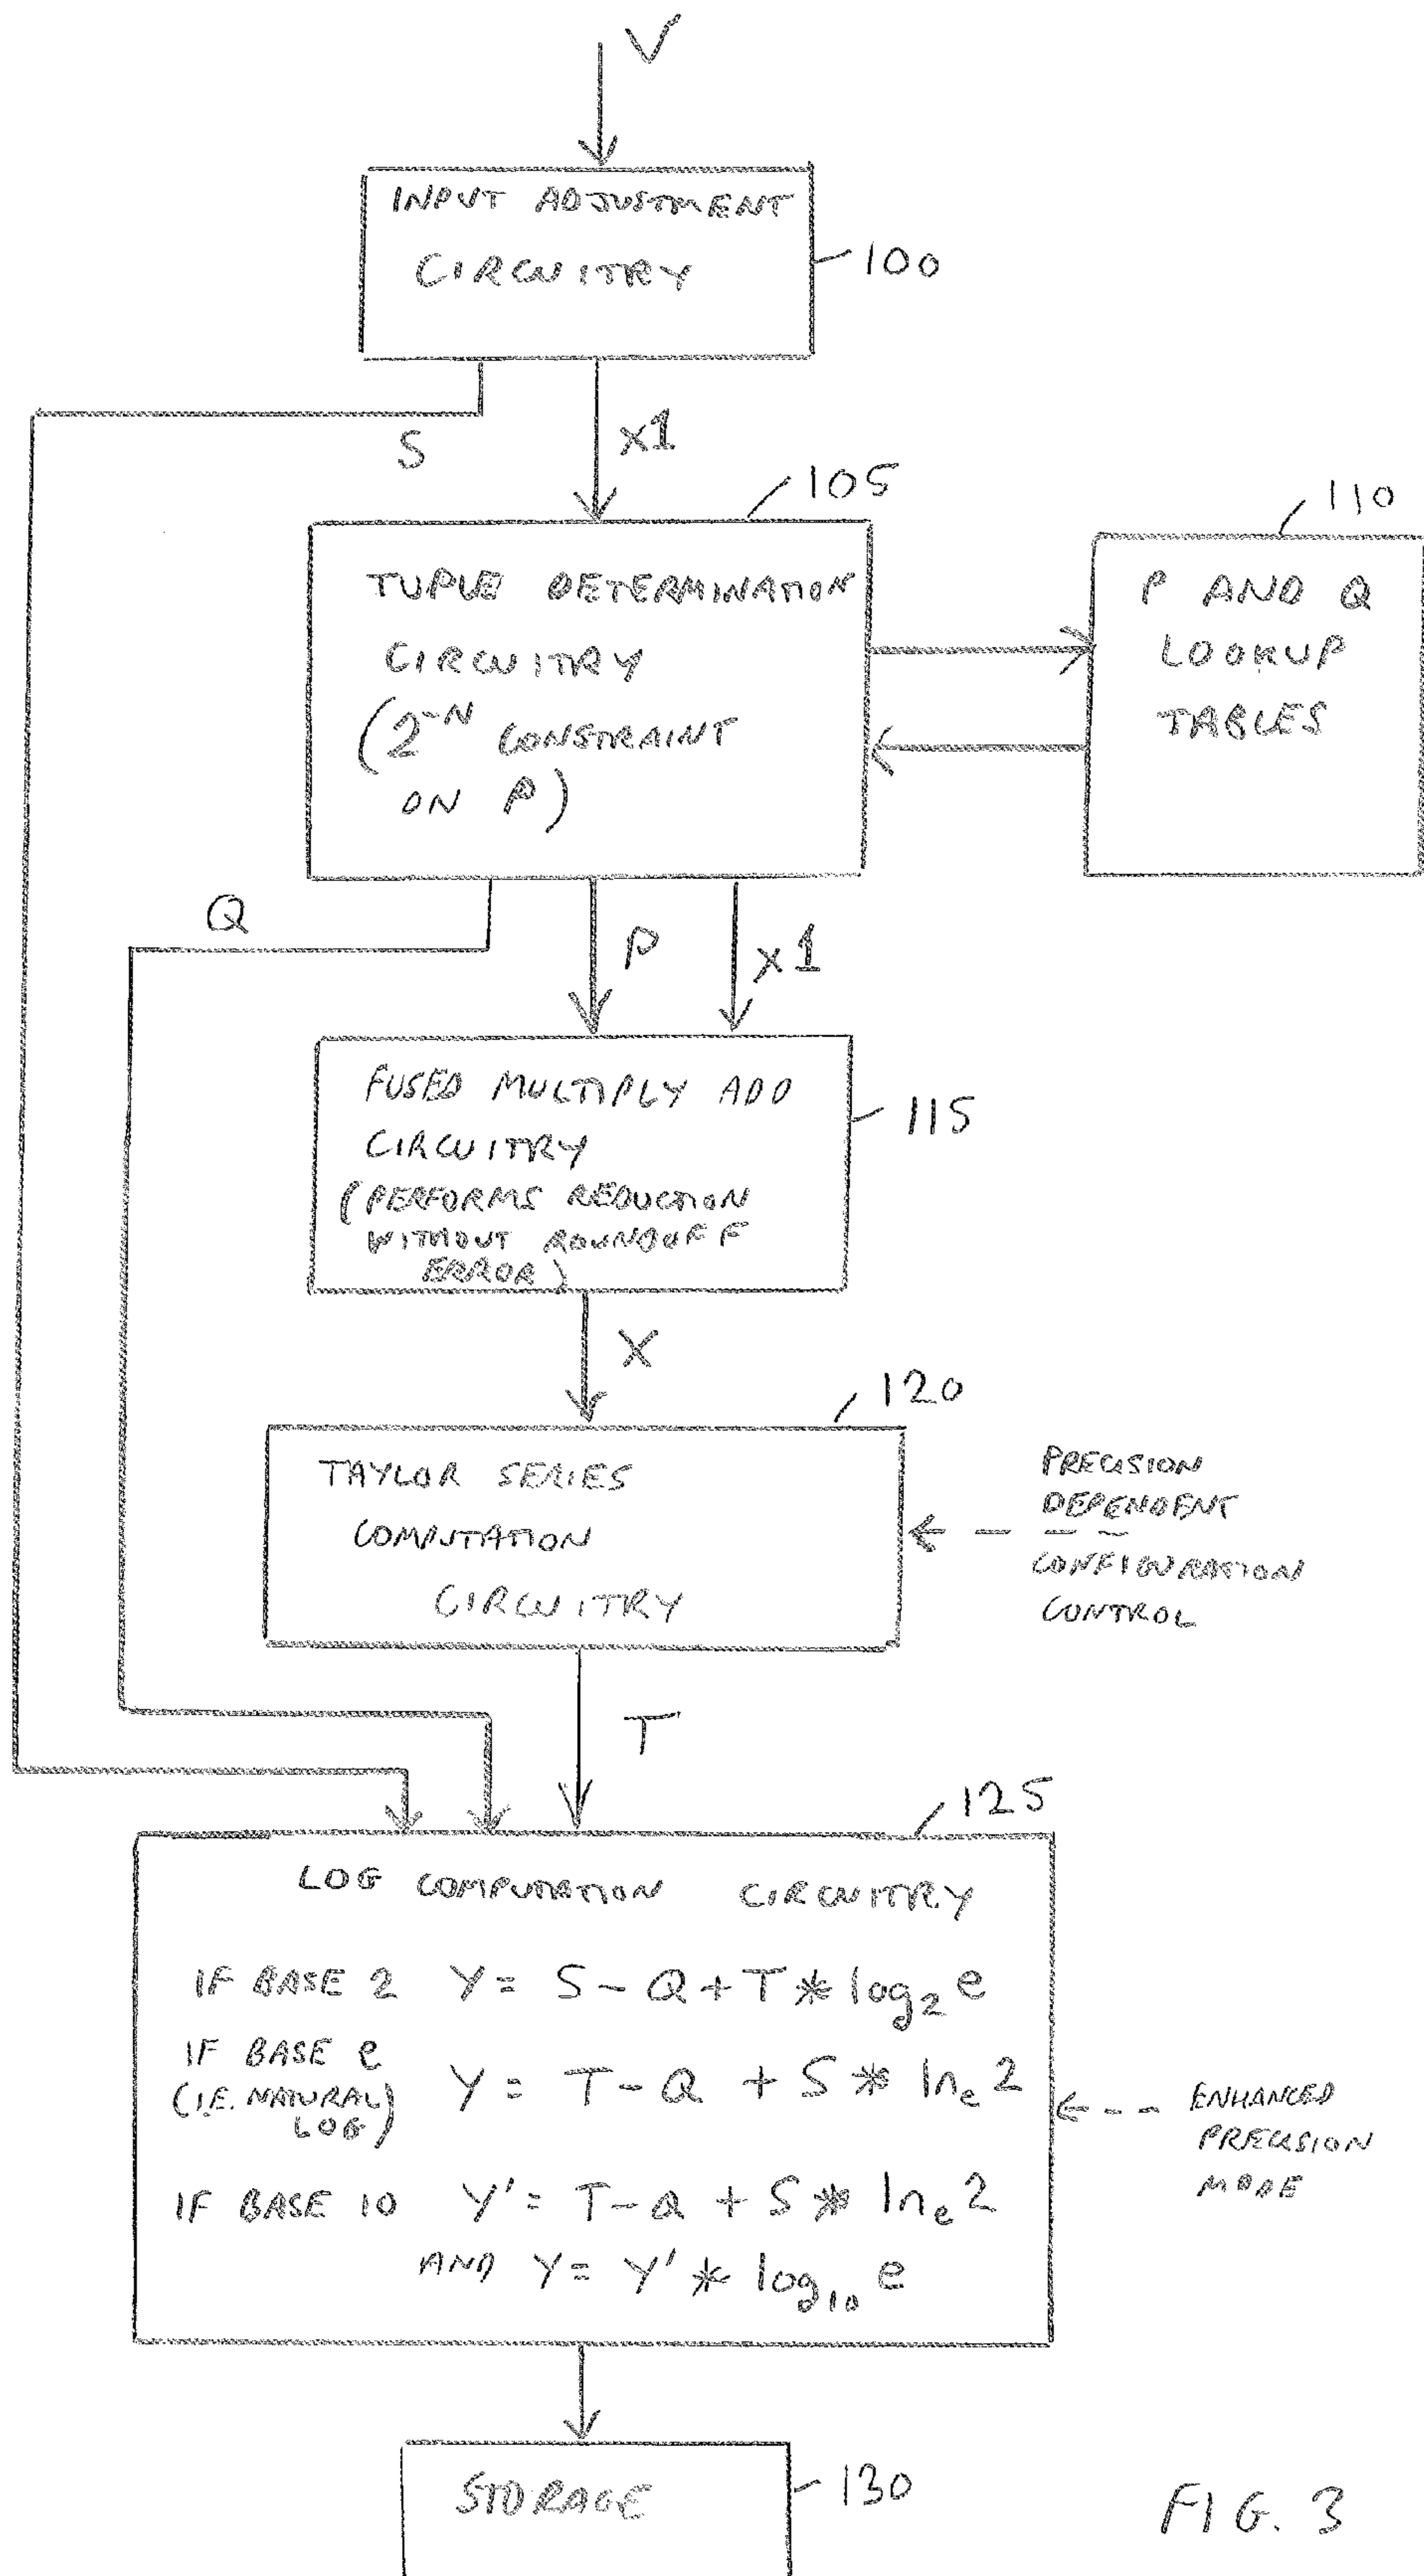 V
INPUT ADJUSTMENT
CIRCUITRY
100
S
X1
105
110
TUPLE DETERMINATION
CIRCUITRY
(2^-N CONSTRAINT
ON P)
P AND Q
LOOKUP
TABLES
Q
P
X1
FUSED MULTIPLY ADD
CIRCUITRY
(PERFORMS REDUCTION
WITHOUT ROUNDOFF
ERROR)
115
X
120
TAYLOR SERIES
COMPUTATION
CIRCUITRY
PRECISION
DEPENDENT
CONFIGURATION
CONTROL
T
125
LOG COMPUTATION CIRCUITRY
IF BASE 2 Y = S - Q + T * log₂ e
IF BASE e
(I.E. NATURAL
LOG)
Y = T - Q + S * lnₑ 2
IF BASE 10 Y' = T - Q + S * lnₑ 2
AND Y = Y' * log₁₀ e
ENHANCED
PRECISION
MODE
STORAGE
130
FIG. 3